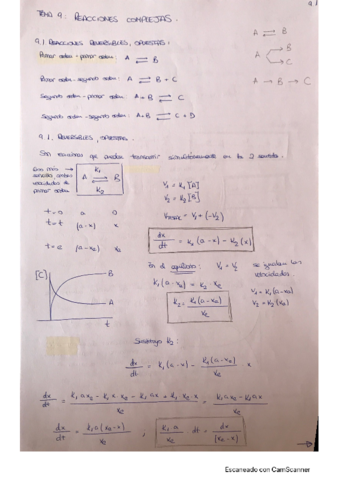 9.1
TEMA 9: REACCIONES COMPLEJAS.
9.1 REACCIONES REVERSIBLES, OPUESTAS:
Primer orden - primer orden: A ⇌ B
Primer orden - segundo orden: A ⇌ B + C
Segundo orden - primer orden: A+B ⇌ C
Segundo orden - segundo orden: A+B ⇌ C + D
A ⇌ B
A → B
C
A → B → C
9.1. REVERSIBLES, OPUESTAS.
Son reacciones que pueden transcurrir simultáneamente en los 2 sentidos.
sencillo, ambas
velocidades de
primer orden
A ⇌ B
K₁
K₂
V₁ = K₁ [A]
V₂ = K₂ [B]
= V₁ + (-V₂)
t=0 a 0
t=t (a-x) x
(a-xe) xe
dx/dt = K₁ (a-x) - K₂ (x)
[C]
B
A
t
En el equilibrio: V₁ = V₂ se igualan las velocidades
K₁ (a-xe) = K₂ xe
V₁ = K₁ (a-xe)
V₂ = K₂ (xe)
K₂ = K₁(a-xe)/xe
Sustituyo K₂:
dx/dt = K₁ (a-x) - K₁(a-xe)/xe x
dx/dt = K₁ a xe - K₁ x xe - K₁ a x + K₁ xe x / xe = K₁ a xe - K₁ a x / xe
dx/dt = K₁ a (xe-x) / xe , K₁ a / xe dt = dx / (xe-x)
Escaneado con CamScanner